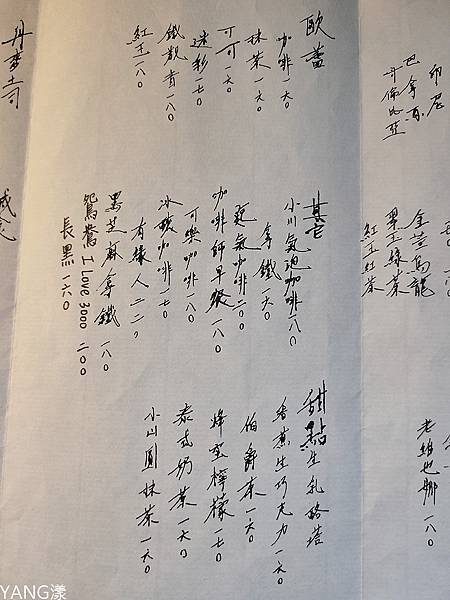 印尼
巴拿馬
哥倫比亞
金萱烏龍
翠玉綠茶
紅玉紅茶
老維也娜 一八〇
歐蕾
咖啡 一六〇
抹茶 一六〇
可可 一六〇
迷彩 一七〇
鐵觀音 一八〇
紅玉 一八〇
其它
小川氣泡咖啡 一八〇
拿鐵 一六〇
氮氣咖啡 二〇〇
咖啡師早餐 一八〇
可樂咖啡 一八〇
冰釀咖啡 一七〇
有緣人 二二〇
黑芝麻拿鐵 一八〇
鴛鴦 I Love 3000 二〇〇
長黑 一六〇
甜點
生乳酪塔
香蕉生巧克力 一六〇
伯爵茶 一六〇
檸檬 一七〇
泰式奶茶 一六〇
小山園抹茶 一六〇
丹麥土司
YANG漾